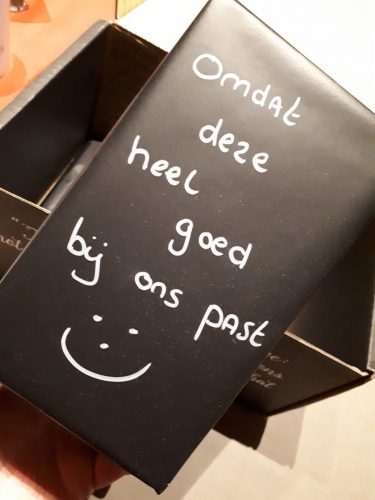 Omdat
deze
heel
goed
bij ons past